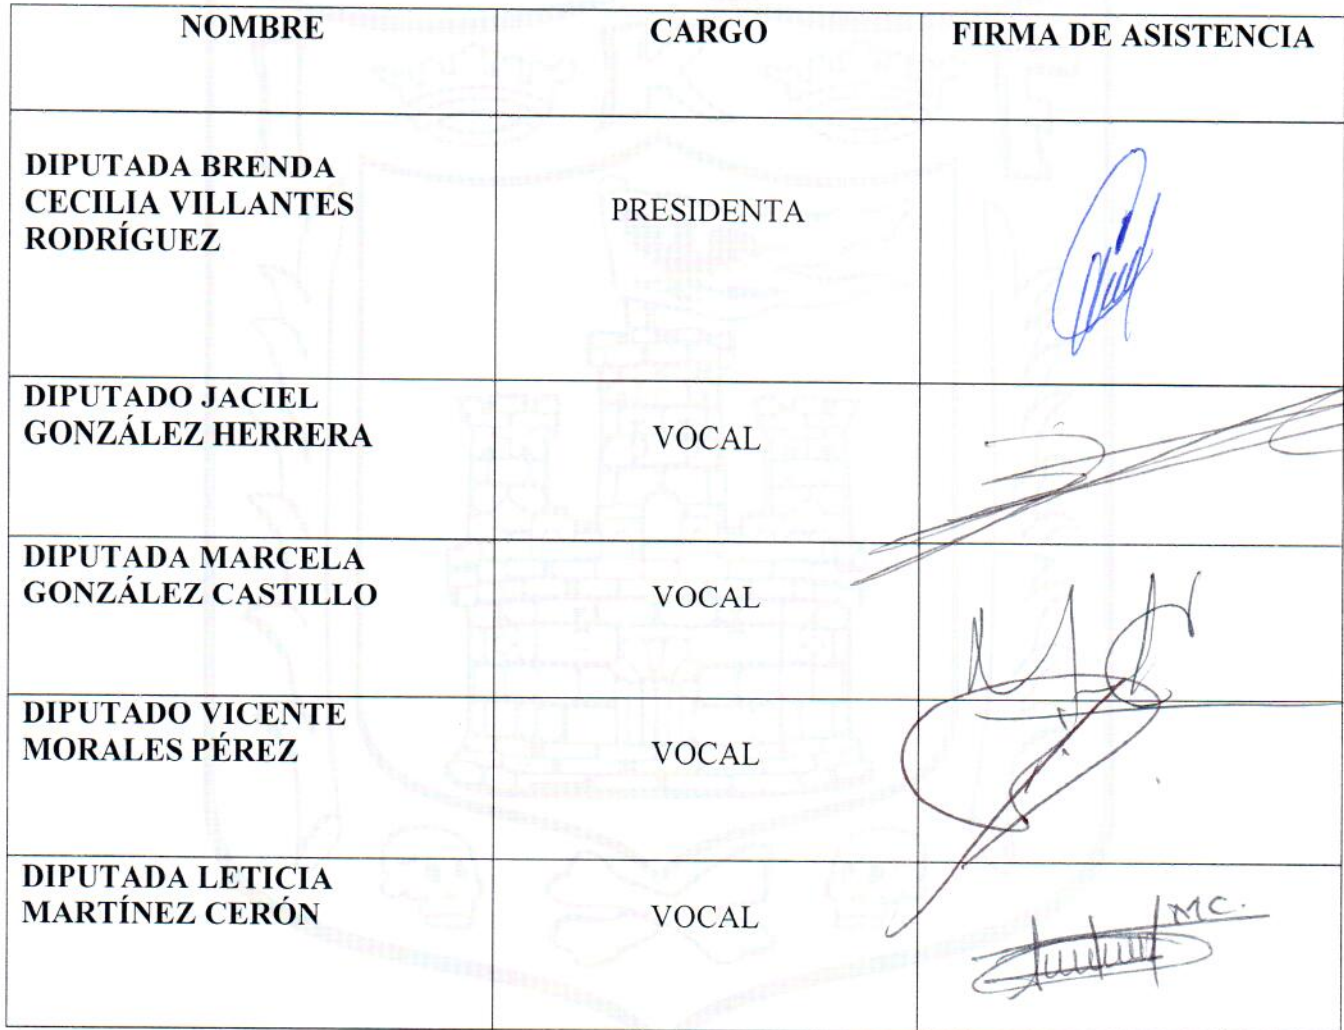 NOMBRE CARGO FIRMA DE ASISTENCIA
DIPUTADA BRENDA
CECILIA VILLANTES
RODRÍGUEZ
PRESIDENTA
DIPUTADO JACIEL
GONZÁLEZ HERRERA
VOCAL
DIPUTADA MARCELA
GONZÁLEZ CASTILLO
VOCAL
DIPUTADO VICENTE
MORALES PÉREZ
VOCAL
DIPUTADA LETICIA
MARTÍNEZ CERÓN
VOCAL
MC.